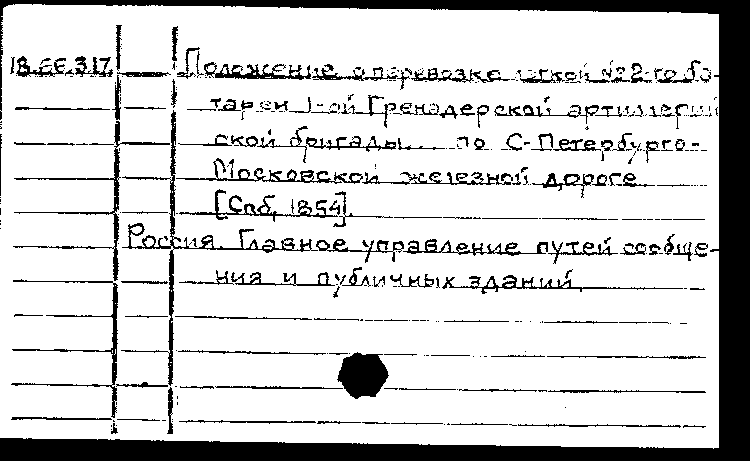 18.66.317. Положение о перевозке легкой №2-го ба-
тареи 1-ой Гренадерской артиллерий
ской бригады... по С-Петербурго-
Московской железной дороге.
[Спб, 1854].
Россия. Главное управление путей сообще-
ния и публичных зданий.